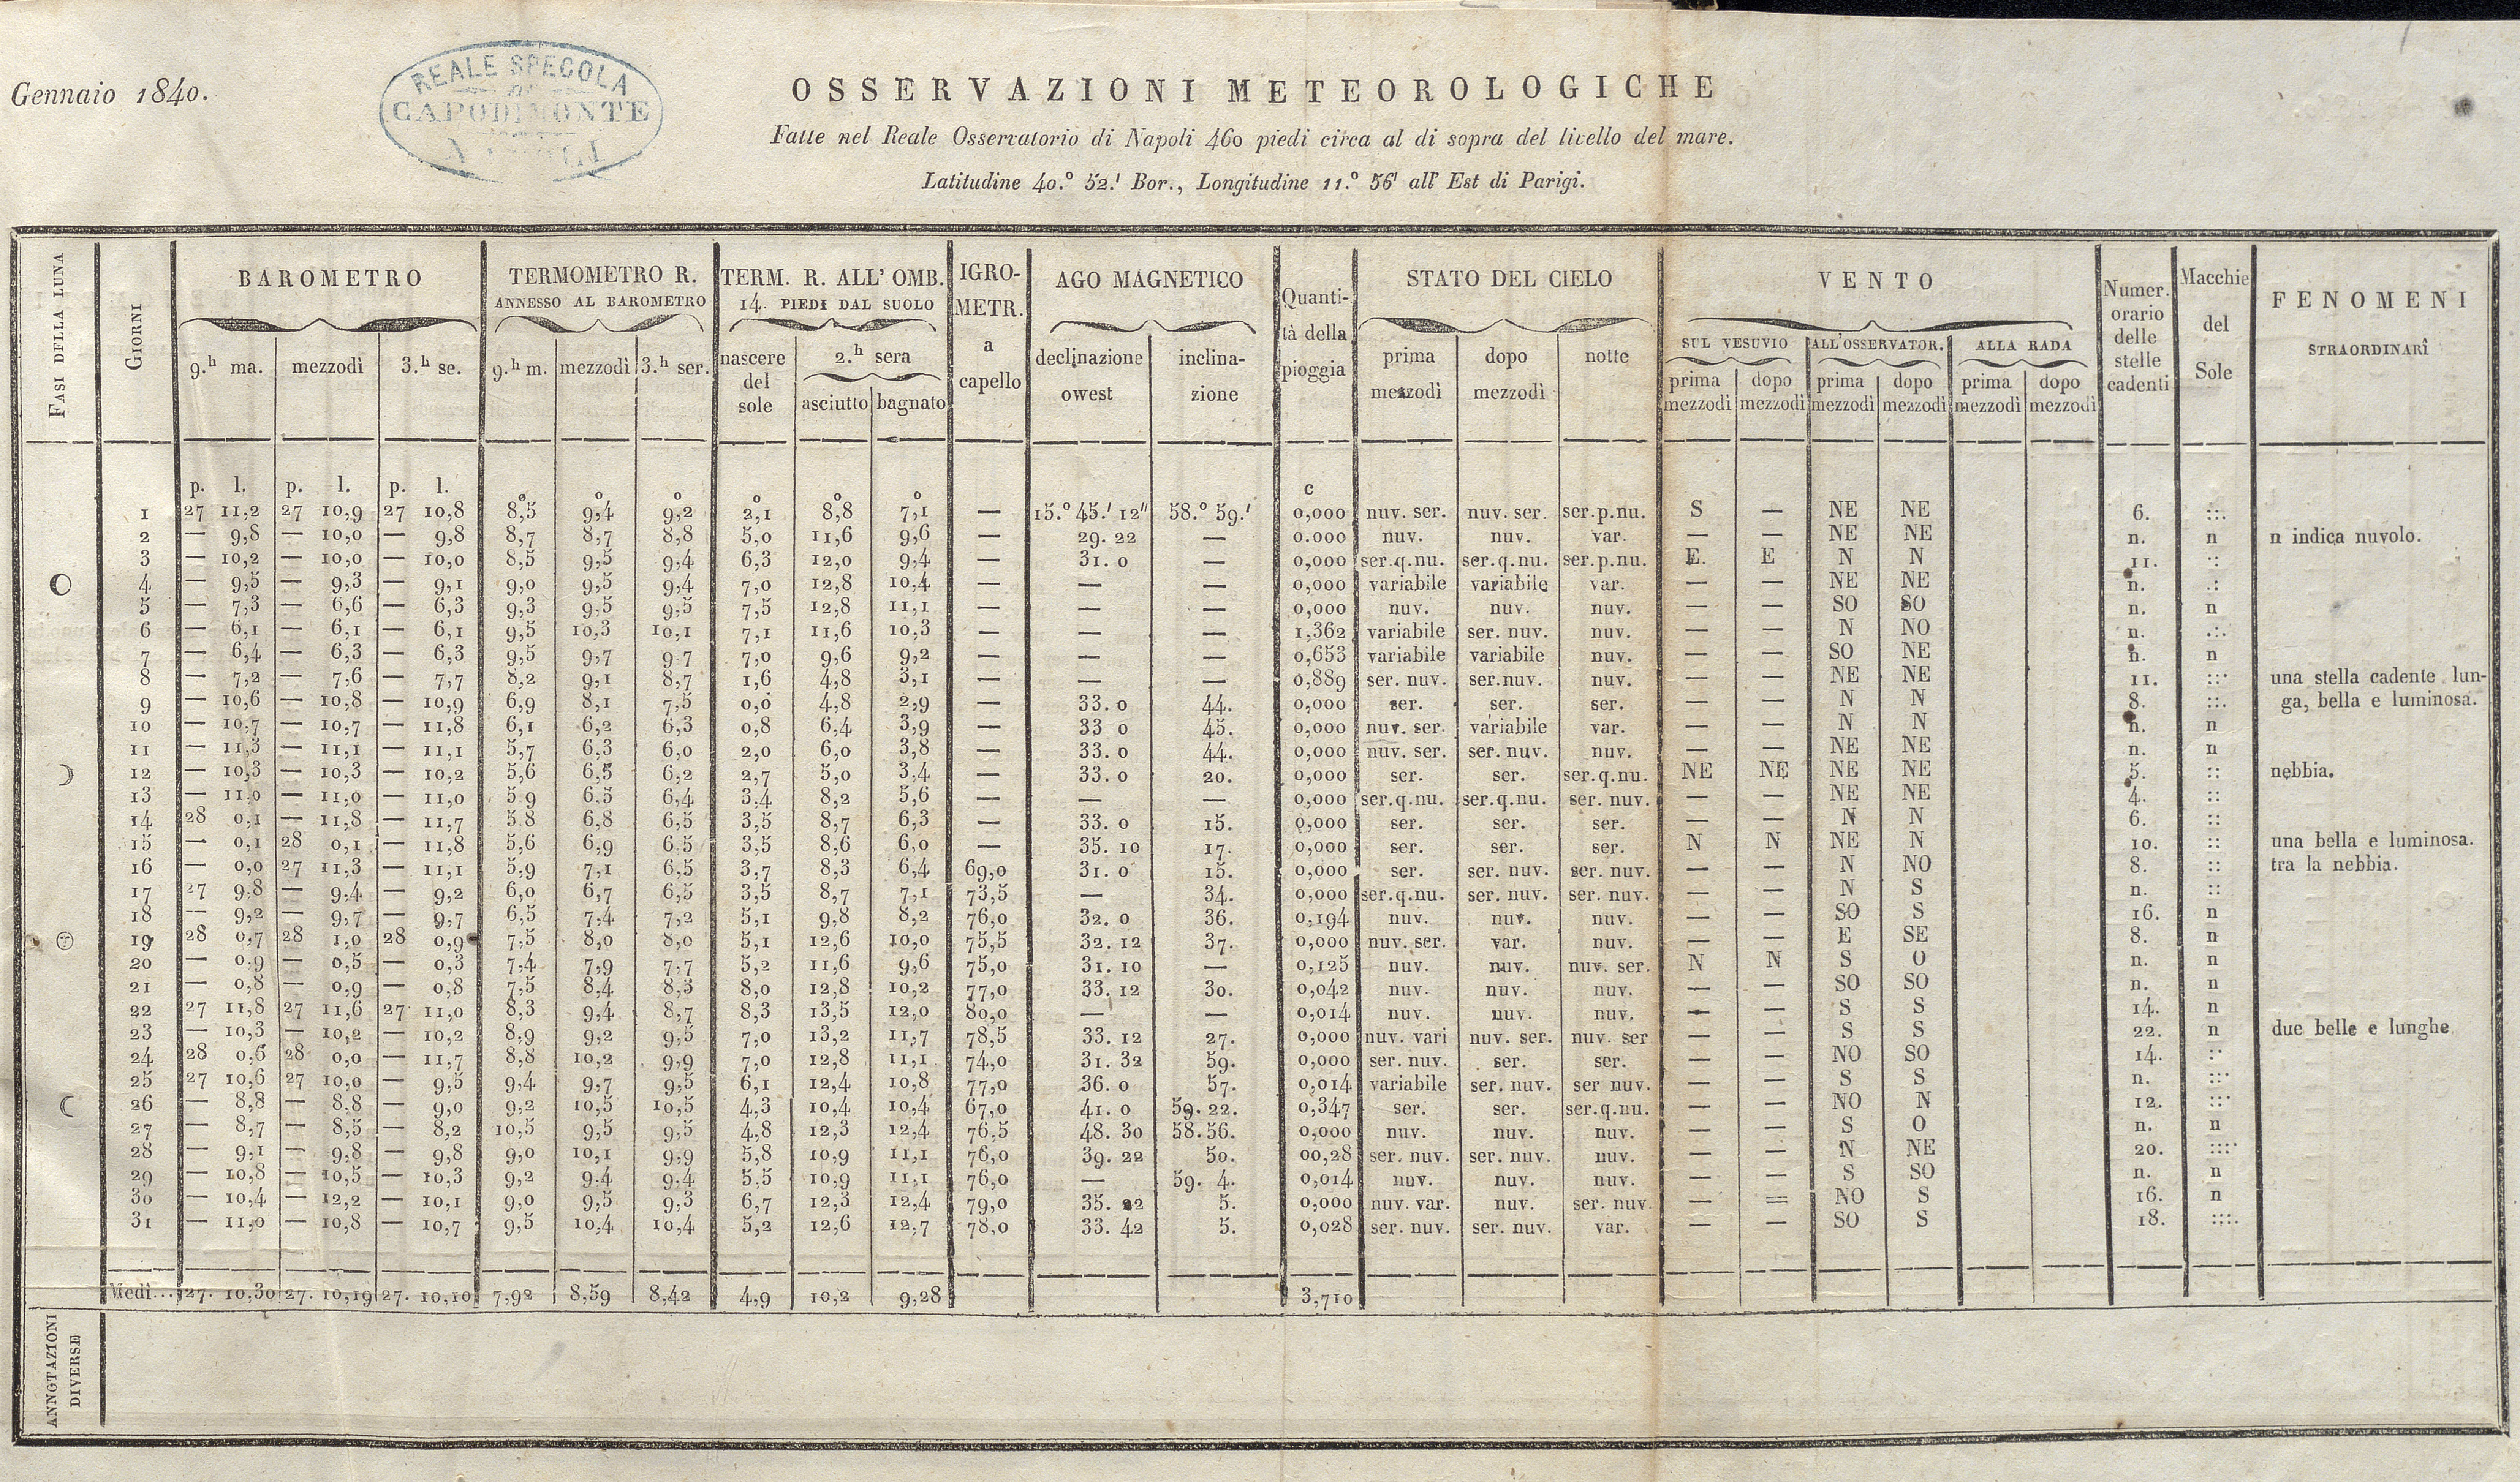 Gennaio 1840.
REALE SPECOLA
DI
CAPODIMONTE
OSSERVAZIONI METEOROLOGICHE
Fatte nel Reale Osservatorio di Napoli 460 piedi circa al di sopra del livello del mare.
Latitudine 40.° 52.' Bor., Longitudine 11.° 56' all' Est di Parigi.
FASI DELLA LUNA
GIORNI
BAROMETRO
9.h ma. mezzodì 3.h se.
TERMOMETRO R.
ANNESSO AL BAROMETRO
9.h m. mezzodì 3.h ser.
TERM. R. ALL' OMB.
14. PIEDI DAL SUOLO
nascere del sole
2.h sera
asciutto bagnato
IGRO-
METR.
a
capello
AGO MAGNETICO
declinazione owest
inclina-
zione
Quanti-
tà della
pioggia
STATO DEL CIELO
prima mezzodì
dopo mezzodì
notte
VENTO
SUL VESUVIO ALL'OSSERVATOR. ALLA RADA
prima mezzodì dopo mezzodì prima mezzodì dopo mezzodì prima mezzodì dopo mezzodì
Numer.
orario
delle
stelle
cadenti
Macchie
del
Sole
FENOMENI
STRAORDINARÎ
p. l. p. l. p. l. ° ° ° ° ° ° c
1 27 11,2 27 10,9 27 10,8 8,5 9,4 9,2 2,1 8,8 7,1 — 15.° 45.' 12" 58.° 59.' 0,000 nuv. ser. nuv. ser. ser.p.nu. S — NE NE 6. ::.
2 — 9,8 — 10,0 — 9,8 8,7 8,7 8,8 5,0 11,6 9,6 — 29. 22 — 0.000 nuv. nuv. var. — — NE NE n. n n indica nuvolo.
3 — 10,2 — 10,0 — 10,0 8,5 9,5 9,4 6,3 12,0 9,4 — 31. 0 — 0,000 ser.q.nu. ser.q.nu. ser.p.nu. E. E N N 11. ::
4 — 9,5 — 9,3 — 9,1 9,0 9,5 9,4 7,0 12,8 10,4 — — — 0,000 variabile variabile var. — — NE NE n. .:
5 — 7,3 — 6,6 — 6,3 9,3 9,5 9,5 7,5 12,8 11,1 — — — 0,000 nuv. nuv. nuv. — — SO SO n. n
6 — 6,1 — 6,1 — 6,1 9,5 10,3 10,1 7,1 11,6 10,3 — — — 1,362 variabile ser. nuv. nuv. — — N NO n. .:.
7 — 6,4 — 6,3 — 6,3 9,5 9,7 9,7 7,0 9,6 9,2 — — — 0,653 variabile variabile nuv. — — SO NE n. n
8 — 7,2 — 7,6 — 7,7 8,2 9,1 8,7 1,6 4,8 3,1 — — — 0,889 ser. nuv. ser.nuv. nuv. — — NE NE 11. ::· una stella cadente lun-
9 — 10,6 — 10,8 — 10,9 6,9 8,1 7,5 0,0 4,8 2,9 — 33. 0 44. 0,000 ser. ser. ser. — — N N 8. ::. ga, bella e luminosa.
10 — 10,7 — 10,7 — 11,8 6,1 6,2 6,3 0,8 6,4 3,9 — 33 0 45. 0,000 nuv. ser. variabile var. — — N N n. n
11 — 11,3 — 11,1 — 11,1 5,7 6,3 6,0 2,0 6,0 3,8 — 33. 0 44. 0,000 nuv. ser. ser. nuv. nuv. — — NE NE n. n
12 — 10,3 — 10,3 — 10,2 5,6 6,5 6,2 2,7 5,0 3,4 — 33. 0 20. 0,000 ser. ser. ser.q.nu. NE NE NE NE 5. :: nebbia.
13 — 11,0 — 11,0 — 11,0 5,9 6,5 6,4 3,4 8,2 5,6 — — — 0,000 ser.q.nu. ser.q.nu. ser. nuv. — — NE NE 4. ::
14 28 0,1 — 11,8 — 11,7 5.8 6,8 6,5 3,5 8,7 6,3 — 33. 0 15. 0,000 ser. ser. ser. — — N N 6. ::
15 — 0,1 28 0,1 — 11,8 5,6 6,9 6,5 3,5 8,6 6,0 — 35. 10 17. 0,000 ser. ser. ser. N N NE N 10. :: una bella e luminosa.
16 — 0,0 27 11,3 — 11,1 5,9 7,1 6,5 3,7 8,3 6,4 69,0 31. 0 15. 0,000 ser. ser. nuv. ser. nuv. — — N NO 8. :: tra la nebbia.
17 27 9,8 — 9,4 — 9,2 6,0 6,7 6,5 3,5 8,7 7,1 73,5 — 34. 0,000 ser.q.nu. ser. nuv. ser. nuv. — — N S n. ::
18 — 9,2 — 9,7 — 9,7 6,5 7,4 7,2 5,1 9,8 8,2 76,0 32. 0 36. 0,194 nuv. nuv. nuv. — — SO S 16. n
19 28 0,7 28 1,0 28 0,9 7,5 8,0 8,0 5,1 12,6 10,0 75,5 32. 12 37. 0,000 nuv. ser. var. nuv. — — E SE 8. n
20 — 0,9 — 0,5 — 0,3 7,4 7,9 7,7 5,2 11,6 9,6 75,0 31. 10 — 0,125 nuv. nuv. nuv. ser. N N S O n. n
21 — 0,8 — 0,9 — 0,8 7,5 8,4 8,3 8,0 12,8 10,2 77,0 33. 12 30. 0,042 nuv. nuv. nuv. — — SO SO n. n
22 27 11,8 27 11,6 27 11,0 8,3 9,4 8,7 8,3 13,5 12,0 80,0 — — 0,014 nuv. nuv. nuv. — — S S 14. n
23 — 10,3 — 10,2 — 10,2 8,9 9,2 9,5 7,0 13,2 11,7 78,5 33. 12 27. 0,000 nuv. vari nuv. ser. nuv. ser — — S S 22. n due belle e lunghe
24 28 0,6 28 0,0 — 11,7 8,8 10,2 9,9 7,0 12,8 11,1 74,0 31. 32 59. 0,000 ser. nuv. ser. ser. — — NO SO 14. :·
25 27 10,6 27 10,0 — 9,5 9,4 9,7 9,5 6,1 12,4 10,8 77,0 36. 0 57. 0,014 variabile ser. nuv. ser nuv. — — S S n. ::·
26 — 8,8 — 8.8 — 9,0 9,2 10,5 10,5 4,3 10,4 10,4 67,0 41. 0 59. 22. 0,347 ser. ser. ser.q.nu. — — NO N 12. ::·
27 — 8,7 — 8,5 — 8,2 10,5 9,5 9,5 4,8 12,3 12,4 76,5 48. 30 58.56. 0,000 nuv. nuv. nuv. — — S O n. n
28 — 9,1 — 9,8 — 9,8 9,0 10,1 9,9 5,8 10,9 11,1 76,0 39. 22 50. 00,28 ser. nuv. ser. nuv. nuv. — — N NE 20. :::·
29 — 10,8 — 10,5 — 10,3 9,2 9.4 9,4 5,5 10,9 11,1 76,0 — 59. 4. 0,014 nuv. nuv. nuv. — — S SO n. n
30 — 10,4 — 12,2 — 10,1 9,0 9,5 9,3 6,7 12,3 12,4 79,0 35. 22 5. 0,000 nuv. var. nuv. ser. nuv — — NO S 16. n
31 — 11,0 — 10,8 — 10,7 9,5 10,4 10,4 5,2 12,6 12,7 78,0 33. 42 5. 0,028 ser. nuv. ser. nuv. var. — — SO S 18. :::.
Medî... 27. 10,30 27. 10,19 27. 10,10 7,92 8,59 8,42 4,9 10,2 9,28 3,710
ANNOTAZIONI
DIVERSE